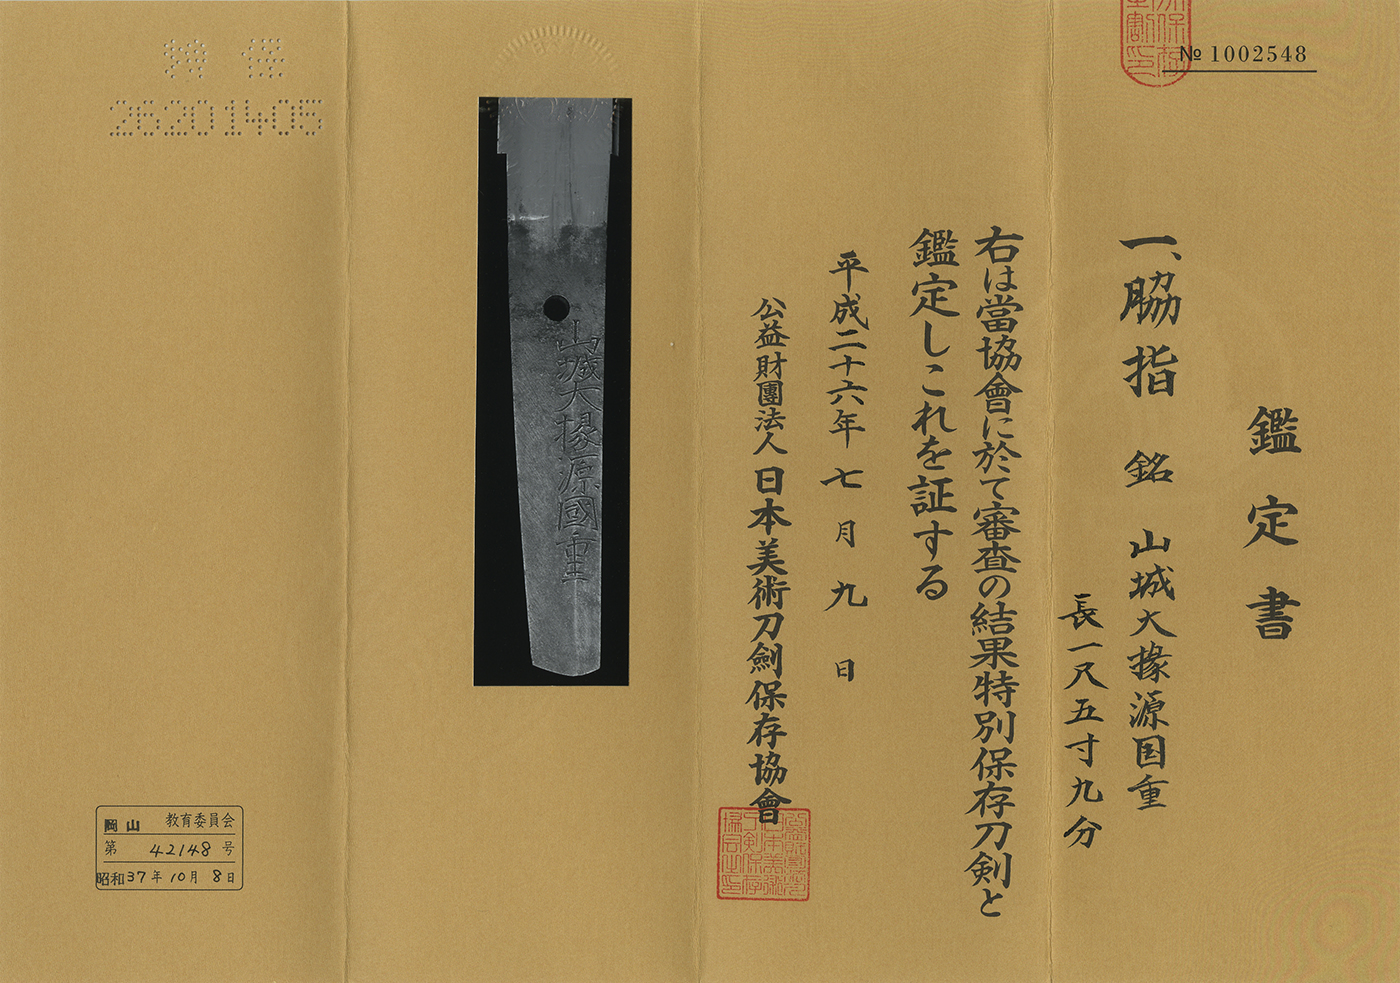 № 1002548
鑑定書
一、脇指 銘 山城大掾源国重
長一尺五寸九分
右は當協會に於て審査の結果特別保存刀剣と
鑑定しこれを証する
平成二十六年七月九日
公益財團法人日本美術刀劍保存協會
山城大掾源國重
特保
26201405
岡山 教育委員会
第 42148 号
昭和37年10月8日